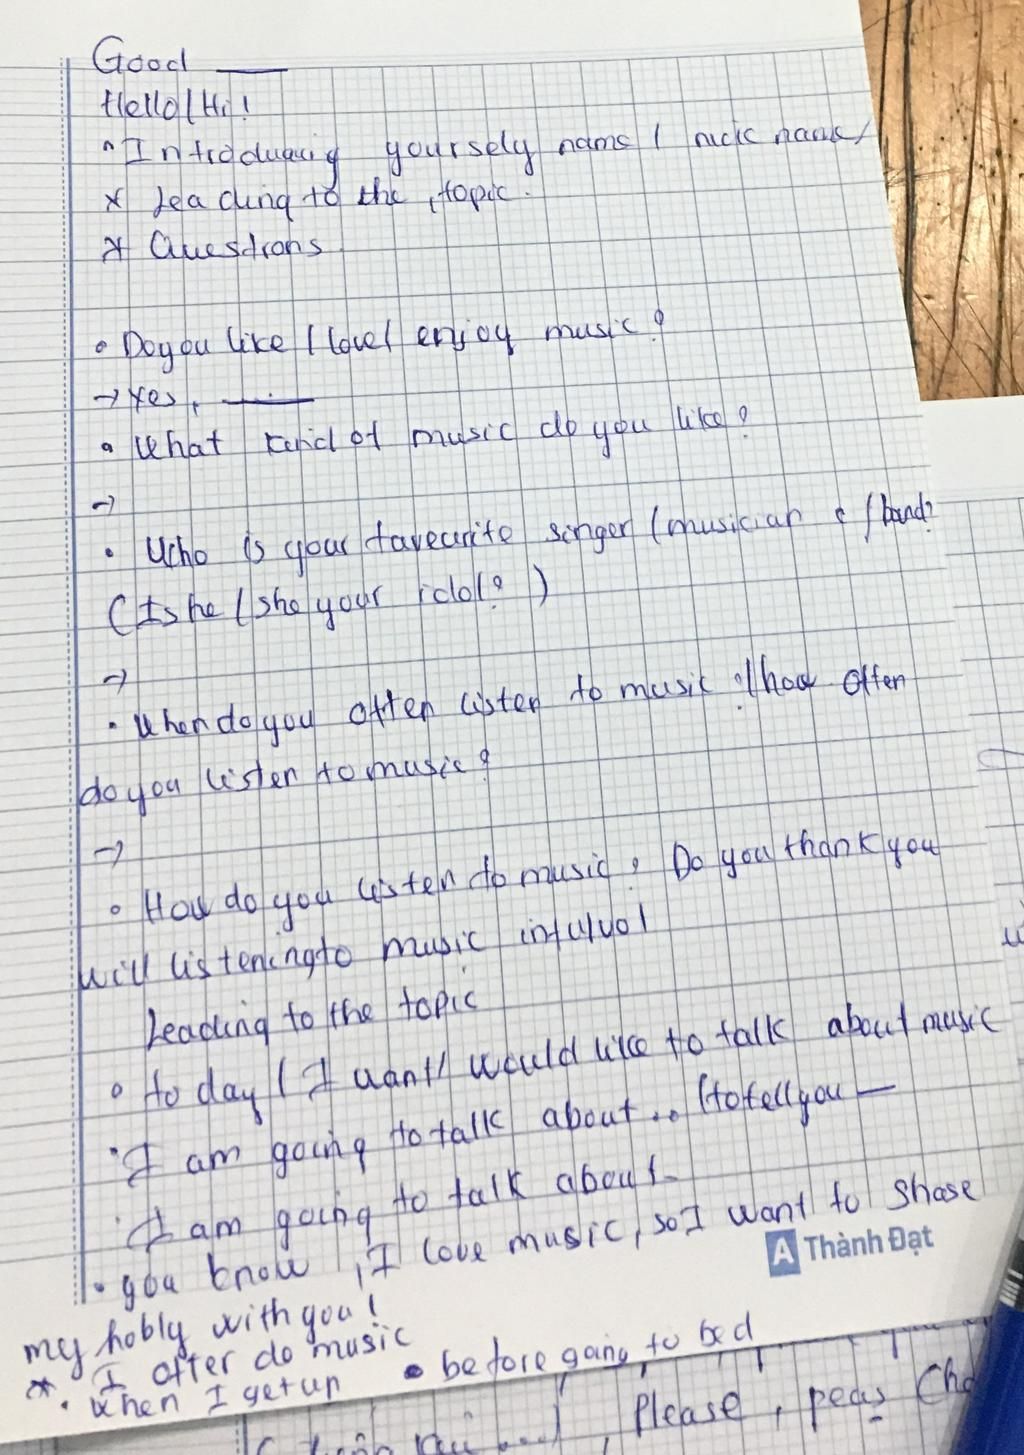 Good ___
Hello/Hi!
* Introducing yoursely name / nick name/
* Leading to the topic.
* Questions
• Do you like / love/ enjoy music?
→ Yes, ___
• What kind of music do you like?
→
• Who is your faveurite singer / musician / band?
( Is he / she your idol? )
→
• When do you often listen to music ? / how often
do you listen to music?
→
• How do you listen to music? Do you thank you
will listening to music
Leading to the topic
• to day / I want/ would like to talk about music
• I am going to talk about... / to tell you —
• I am going to talk about
• you know, I love music, so I want to shase
A Thành Đạt
my hobly with you!
* I ofter do music
• When I get up • before going to bed
Please, peas